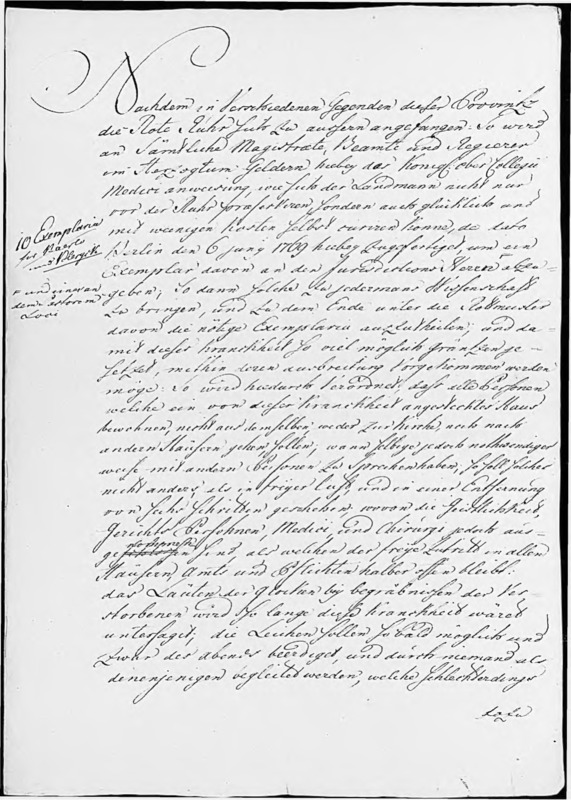 Nachdem in Verschiedenen Gegenden dieser Provintz
die Rote Ruhr sich zu äussern angefangen: So wird
an Sämtliche Magistrate, Beamte und Regierer
im Hertzogtum Geldern hiebey das Königl. ober Collegii
Medici anweisung, wie sich der Landmann nicht nur
vor der Ruhr praeserviren sondern auch glücklich und
mit wenigen Kosten selbst curiren könne, de dato
Berlin den 6 juny 1769 hiebey zugefertiget, um ein
Exemplar davon an den Jurisdictions Herren
10 Exemplaria
für
und einen an
dem Pastorem
Loci
geben; So dann solche zu jedermans Wissenschaft
zu bringen, und zu dem Ende unter die
davon die nötige Exemplaria auszutheilen; und da-
mit dieser Kranckheit so viel möglich Gräntzen ge-
setzet, mithin deren ausbreitung vorgekommen werden
möge: So wird hiedurch verordnet, dass alle Personen
welche ein von dieser Kranckheit angestecktes Haus
bewohnen, nicht aus demselben weder zur Kirche, noch nach
andern Häusern gehen sollen, wann selbige jedoch nothwendiger
weise mit andern Personen zu sprechen haben, so soll solches
nicht anders, als in freyer luft, und in einer Entfernung
von sechs Schritten geschehen, wovon die Geistlichkeit,
Gerichts Persohnen, Medici und Chirurgi jedoch aus-
seynd, als welchen der freye Zutritt in allen
Häusern, Amts und Pflichten halber offen bleibt:
das Läuten der Glocken bey begräbnissen der Ver-
storbenen wird so lange diese Kranckheit wäret
untersaget, die Leichen sollen so bald möglich und
zwar des abends beerdiget, und durch niemand als
denenjenigen begleitet werden, welche schlechterdings
dazu